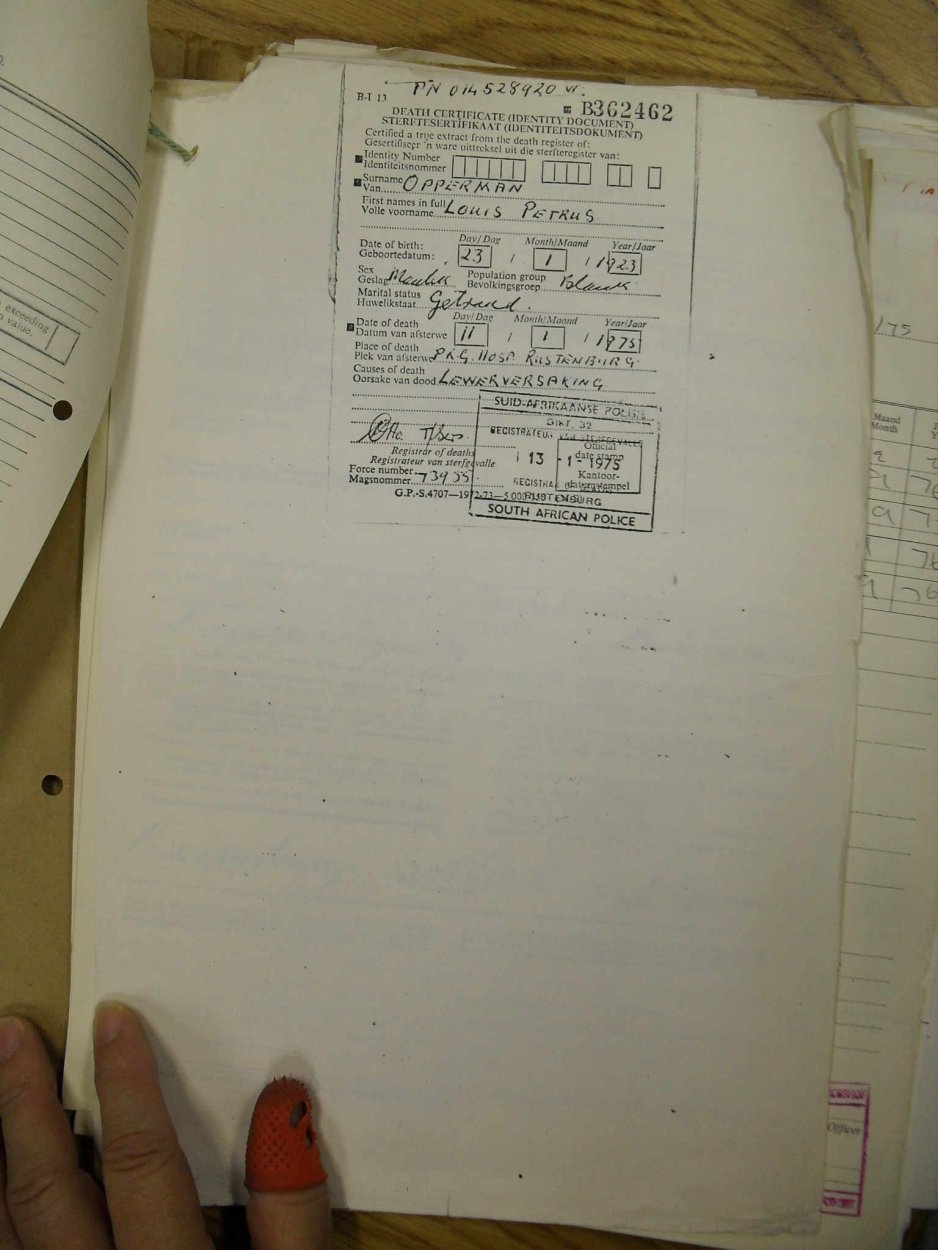 PN 014528920 W.
B-I 13
B362462
DEATH CERTIFICATE (IDENTITY DOCUMENT)
STERFTESERTIFIKAAT (IDENTITEITSDOKUMENT)
Certified a true extract from the death register of:
Gesertifiseer 'n ware uittreksel uit die sterfteregister van:
Identity Number
Identiteitsnommer
Surname
Van OPPERMAN
First names in full
Volle voorname LOUIS PETRUS
Day/Dag Month/Maand Year/Jaar
Date of birth:
Geboortedatum: 23 / 1 / 1923
Sex
Geslag Manlik
Population group
Bevolkingsgroep Blank
Marital status
Huwelikstaat Getroud.
Day/Dag Month/Maand Year/Jaar
Date of death
Datum van afsterwe 11 / 1 / 1975
Place of death
Plek van afsterwe P.K.G. HOSP. RUSTENBURG
Causes of death
Oorsake van dood LEWERVERSAKING
SUID-AFRIKAANSE POLISIE
DIKT. 32
REGISTRATEUR VAN STERFGEVALLE
Official
date stamp
13 -1- 1975
Kantoor-
datumstempel
REGISTRAR
RUSTENBURG
SOUTH AFRICAN POLICE
T/Sers.
Registrar of deaths
Registrateur van sterfgevalle
Force number
Magsnommer 73955.
G.P.-S.4707—1972-73—5 000
exceeding
value.
175
Maand
Month
76
76
Officer